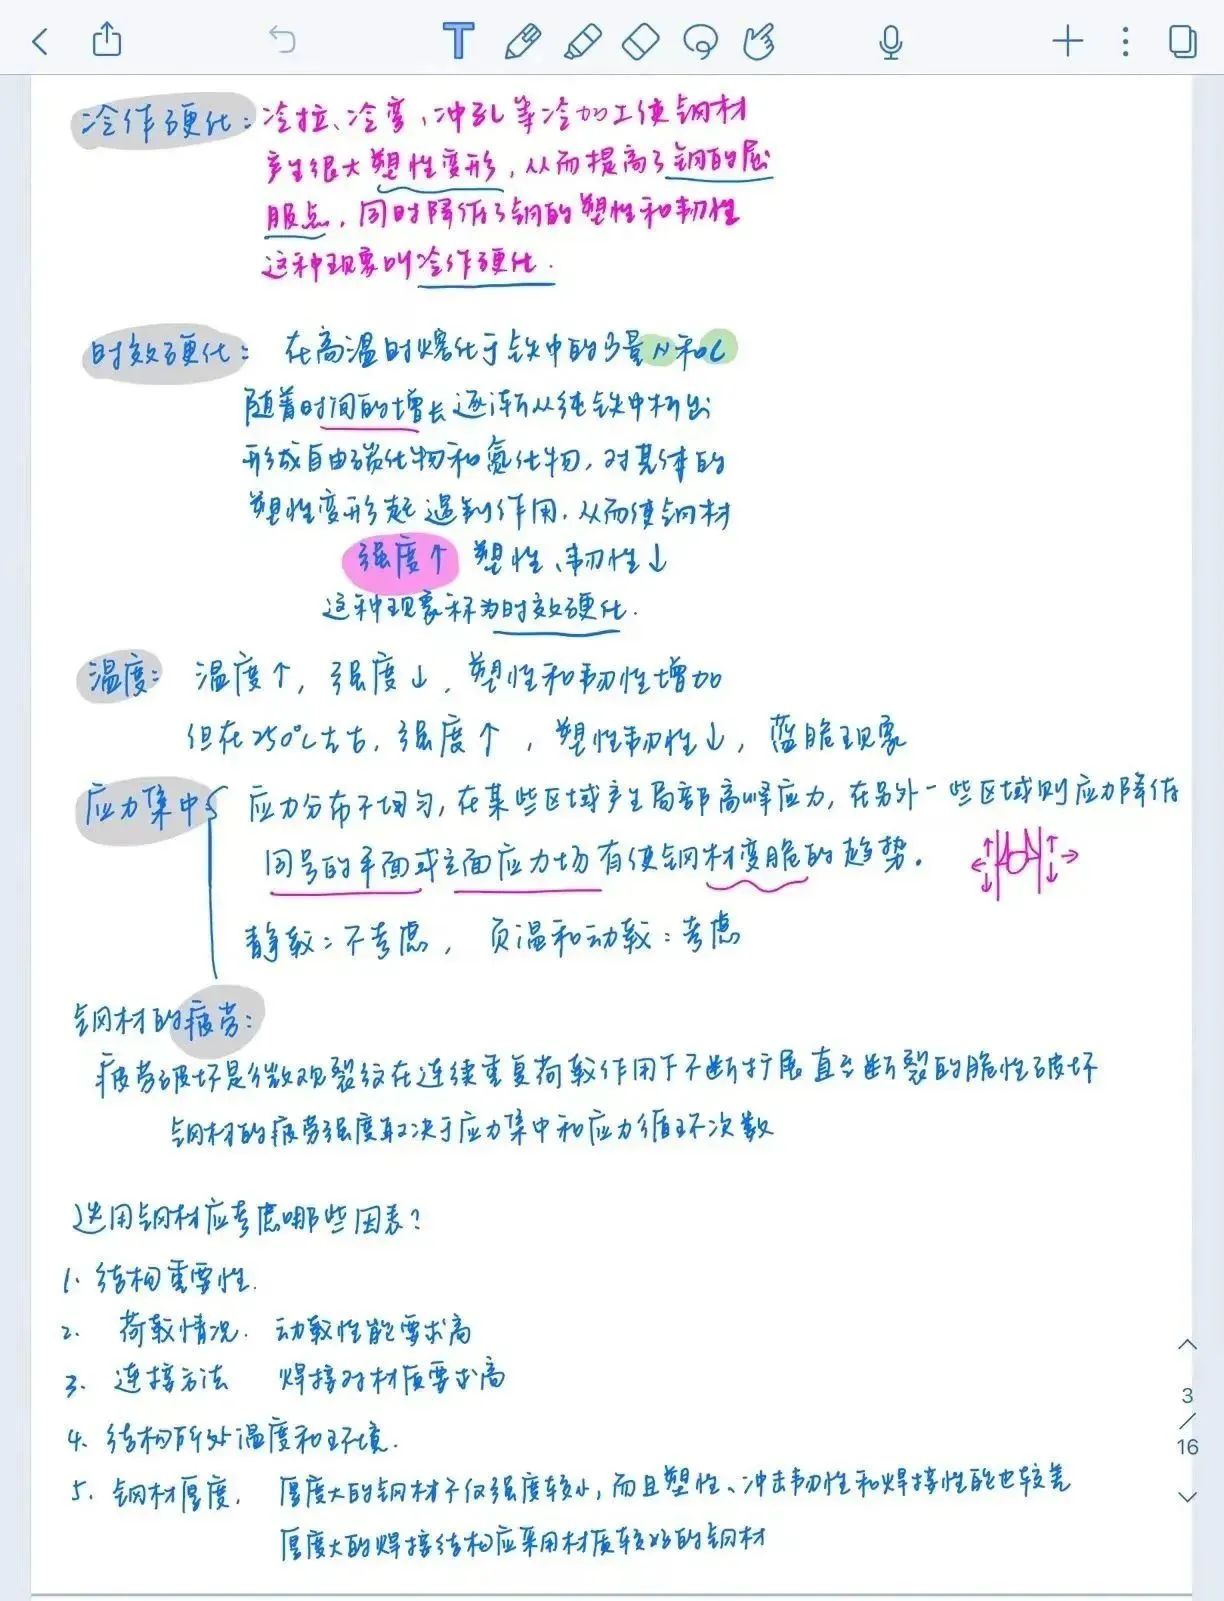 冷作硬化：冷拉、冷弯、冲孔等冷加工使钢材
产生很大塑性变形，从而提高了钢的屈
服点，同时降低了钢的塑性和韧性
这种现象叫冷作硬化．
时效硬化：在高温时熔化于铁中的少量N和C
随着时间的增长逐渐从纯铁中析出
形成自由碳化物和氮化物，对基体的
塑性变形起遏制作用．从而使钢材
强度↑ 塑性、韧性↓
这种现象称为时效硬化．
温度：温度↑，强度↓，塑性和韧性增加
但在250℃左右，强度↑，塑性韧性↓，蓝脆现象
应力集中 应力分布不均匀，在某些区域产生局部高峰应力，在另外一些区域则应力降低
同号的平面或立面应力场有使钢材变脆的趋势．
静载：不考虑，负温和动载：考虑
钢材的疲劳：
疲劳破坏是微观裂纹在连续重复荷载作用下不断扩展直至断裂的脆性破坏
钢材的疲劳强度取决于应力集中和应力循环次数
选用钢材应考虑哪些因素？
1. 结构重要性．
2. 荷载情况．动载性能要求高
3. 连接方法 焊接对材质要求高
4. 结构所处温度和环境．
5. 钢材厚度．厚度大的钢材不仅强度较小，而且塑性、冲击韧性和焊接性能也较差
厚度大的焊接结构应采用材质较好的钢材
3
/
16